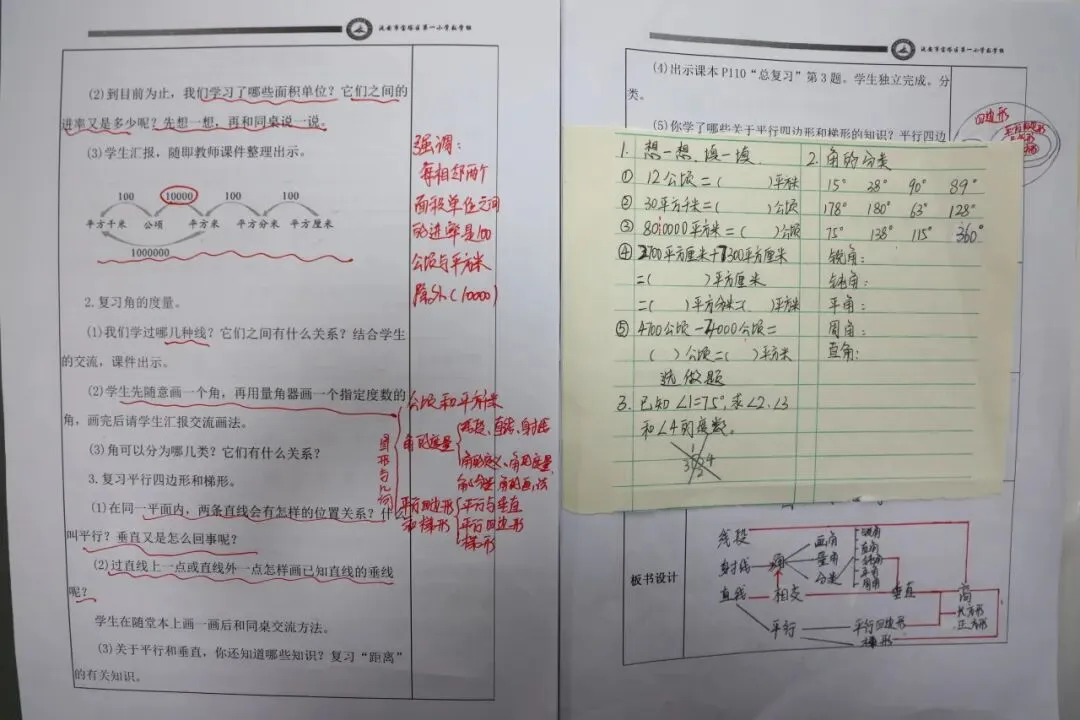 延安市宝塔区第一小学数学组
(2)到目前为止，我们学习了哪些面积单位？它们之间的
进率又是多少呢？先想一想，再和同桌说一说。
(3)学生汇报，随即教师课件整理出示。
100 10000 100 100
平方千米 公顷 平方米 平方分米 平方厘米
1000000
2.复习角的度量。
(1)我们学过哪几种线？它们之间有什么关系？结合学生
的交流，课件出示。
(2)学生先随意画一个角，再用量角器画一个指定度数的
角，画完后请学生汇报交流画法。
(3)角可以分为哪几类？它们有什么关系？
3.复习平行四边形和梯形。
(1)在同一平面内，两条直线会有怎样的位置关系？什
叫平行？垂直又是怎么回事呢？
(2)过直线上一点或直线外一点怎样画已知直线的垂线
呢？
学生在随堂本上画一画后和同桌交流方法。
(3)关于平行和垂直，你还知道哪些知识？复习“距离”
的有关知识。
强调：
每相邻两个
面积单位之间
的进率是100
公顷与平方米
除外(10000)
图形与几何
公顷和平方千米
角的度量
线段、直线、射线
角的定义、角的度量
角的分类、角的画法
平行四边形
和梯形
平行与垂直
平行四边形
梯形
延安市宝塔区第一小学数学组
(4)出示课本P110“总复习”第3题。学生独立完成。分
类。
(5)你学了哪些关于平行四边形和梯形的知识？平行四边
四边形
1. 想一想、填一填.
① 12公顷=( )平方米
② 30平方千米=( )公顷
③ 8010000平方米=( )公顷
④ 2700平方厘米+7300平方厘米
=( )平方厘米
=( )平方分米=( )平方米
⑤ 4700公顷-74000公顷=
( )公顷=( )平方米
选做题
3. 已知∠1=75°,求∠2、∠3
和∠4的度数。
1
3 4
2
2. 角的分类
15° 28° 90° 89°
178° 180° 63° 128°
75° 138° 115° 360°
锐角：
钝角：
平角：
周角：
直角：
板书设计
线段
射线
直线
角
画角
量角
分类
锐角
直角
钝角
平角
周角
相交
垂直
平行
平行四边形
梯形
高
长方形
正方形